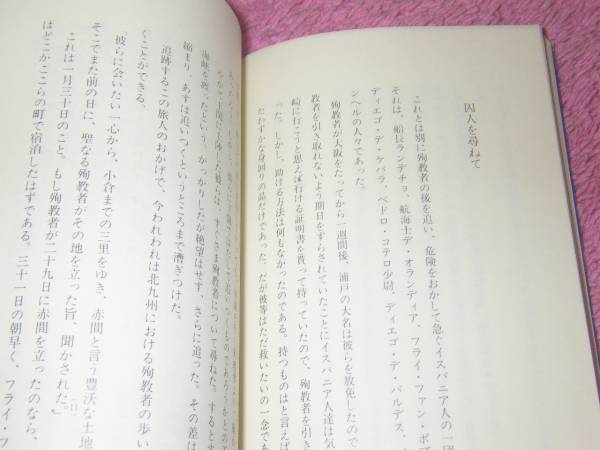 囚人を尋ねて
これとは別に殉教者の後を追い、危険をおかして急ぐイスパニア人の一団
それは、船長ランデチョ、航海士デ・オランディア、フライ・ファン・ポブ
ディエゴ・デ・ケバラ、ペドロ・コテロ少尉、ディエゴ・デ・バルデス、
ンヘルの人々であった。
殉教者が大阪をたってから一週間後、浦戸の大名は彼らを放免したので
教者を引き取れないよう期日をずらされていたことにイスパニア人達は気
崎に行こうと思えば行ける証明書を貰って持っていたので、殉教者を引き
った。しかし、助ける方法は何もなかったのである。持つものはと言えば
たわずかな身回りの品だけであった。だが彼等はただ救いたいの一念でも
すぐさま殉教者について尋ねた。するとす
海峡を渡ったという。がっかりしたが絶望はせず、さらに追った。その差は
縮まり、あすは追いつくというところまで漕ぎつけた。
追跡するこの旅人のおかげで、今われわれは北九州における殉教者の歩い
ぐことができる。
「彼らに会いたい一心から、小倉までの三里をゆき、赤間と言う豊沃な土地
そこでまた前の日に、聖なる殉教者がその地を立った旨、聞かされた。」
これは一月三十日のこと。もし殉教者が二十九日に赤間を立ったのなら、
はどこかここらの町で宿泊したはずである。三十一日の朝早く、フライ・フ